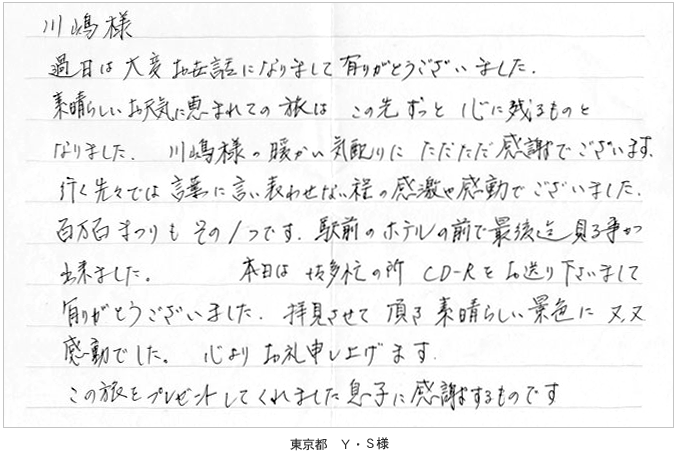 川嶋様
過日は大変お世話になりまして有りがとうございました.
素晴らしいお天気に恵まれての旅は この先ずっと 心に残るものと
なりました. 川嶋様の暖かい気配りに ただただ感謝でございます.
行く先々では 言葉に言い表わせない程の感激や感動でございました.
百万石まつりも その1つです. 駅前のホテルの前で最後迄見る事が
出来ました。 本日は 御多忙の所 CD-Rをお送り下さいまして
有りがとうございました. 拝見させて頂き 素晴らしい景色に 又,又
感動でした。 心よりお礼申し上げます.
この旅をプレゼントしてくれました息子に感謝するものです
東京都 Y・S様